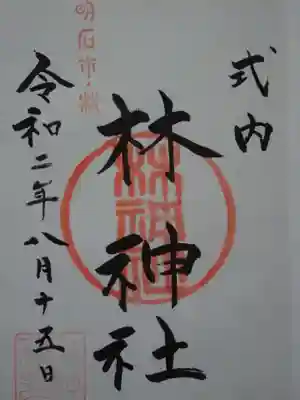 式内
林神社
令和二年八月十五日
明石市・林
林神社